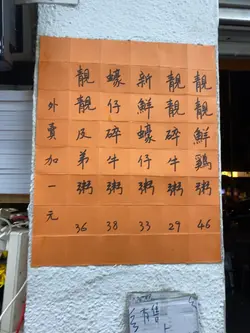 靚靚鮮鷄粥 46
靚靚碎牛粥 27
新鮮蠔仔粥 33
蠔仔碎牛粥 38
靚靚及弟粥 36
外賣加一元
有售